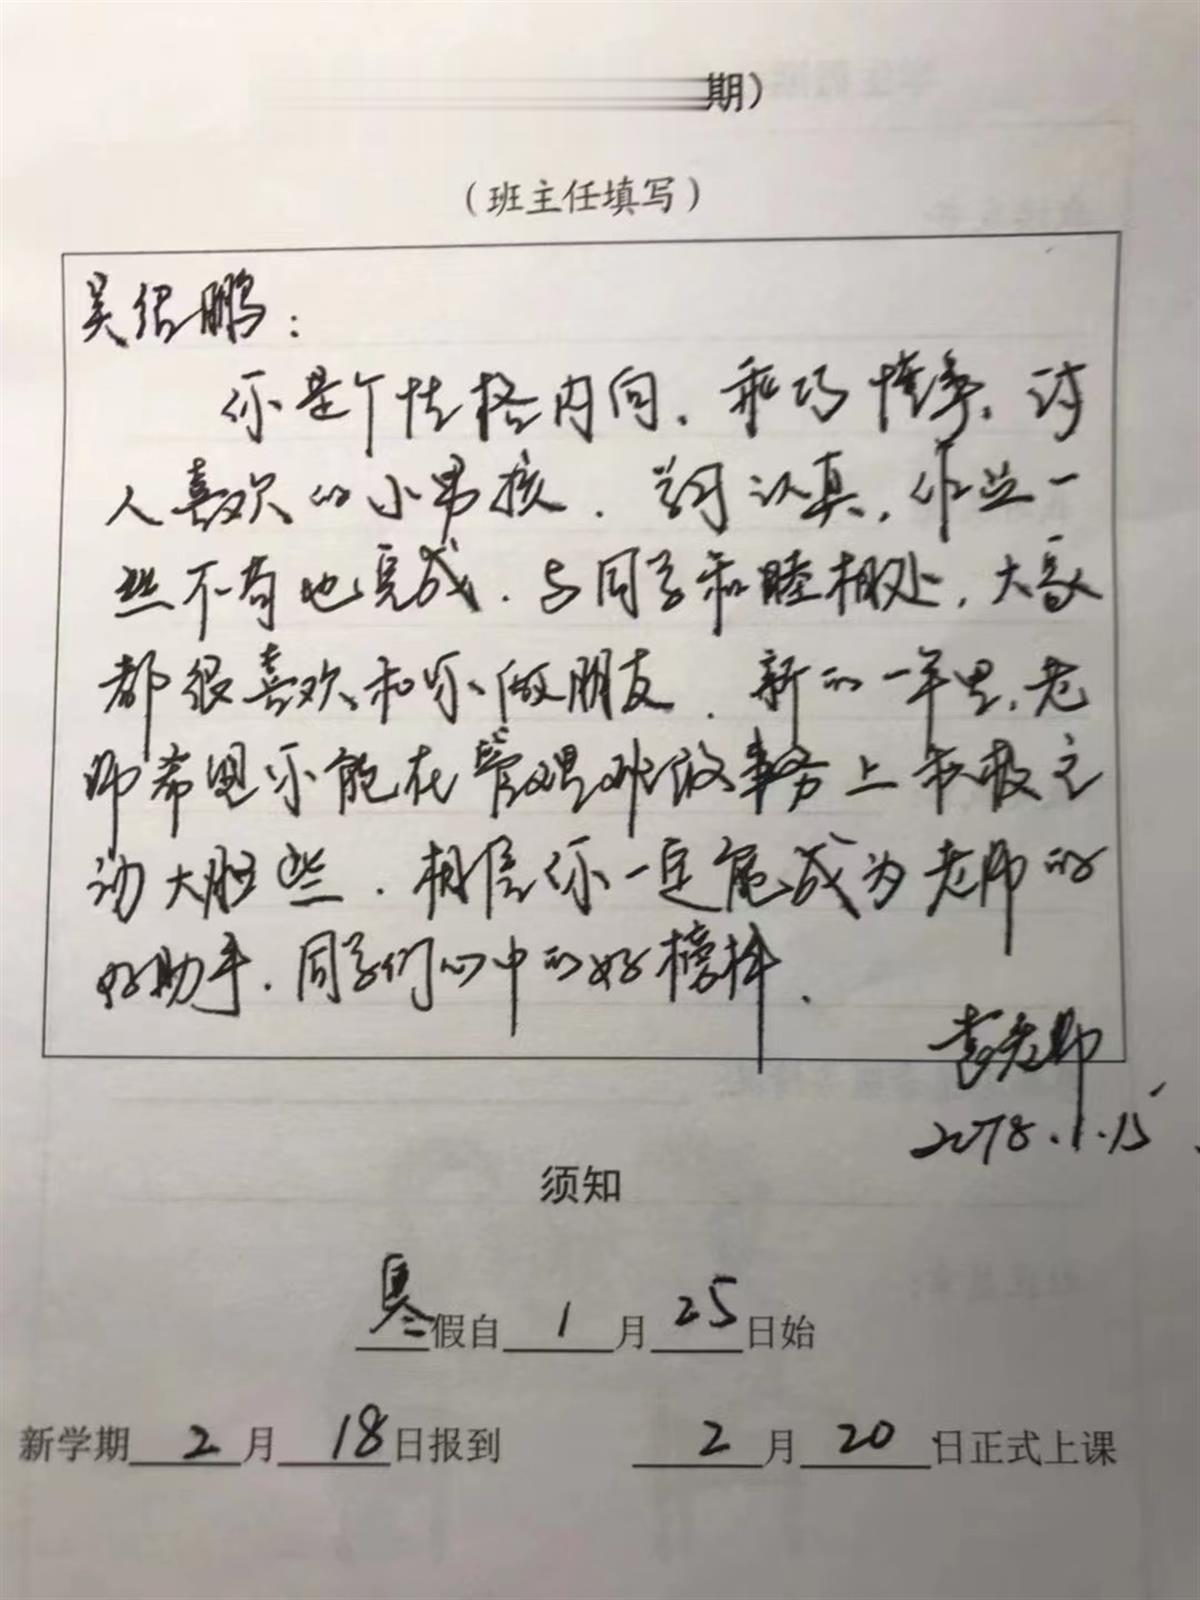 期）
（班主任填写）
吴绍鹏：
你是个性格内向、乖巧懂事、讨
人喜欢的小男孩．学习认真，作业一
丝不苟地完成．与同学和睦相处，大家
都很喜欢和你做朋友．新的一年里，老
师希望你能在管理班级事务上积极主
动大胆些．相信你一定能成为老师的
好助手．同学们心中的好榜样．
老师
2018.1.15
须知
寒假自1月25日始
新学期2月18日报到 2月20日正式上课